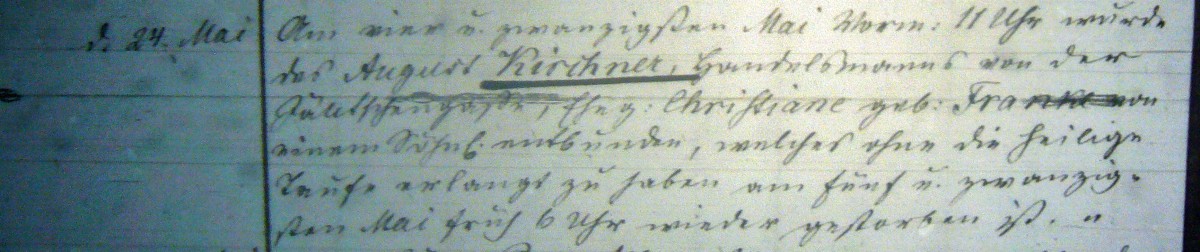 d. 24. Mai
Am vier u. zwanzigsten Mai Vorm: 11 Uhr wurde
des August Kirchner, Handelsmanns von der
Eheg: Christiane geb: Franke von
einem Söhnl. entbunden, welches ohne die heilige
Taufe erlangt zu haben am fünf u. zwanzig-
sten Mai früh 6 Uhr wieder gestorben ist.